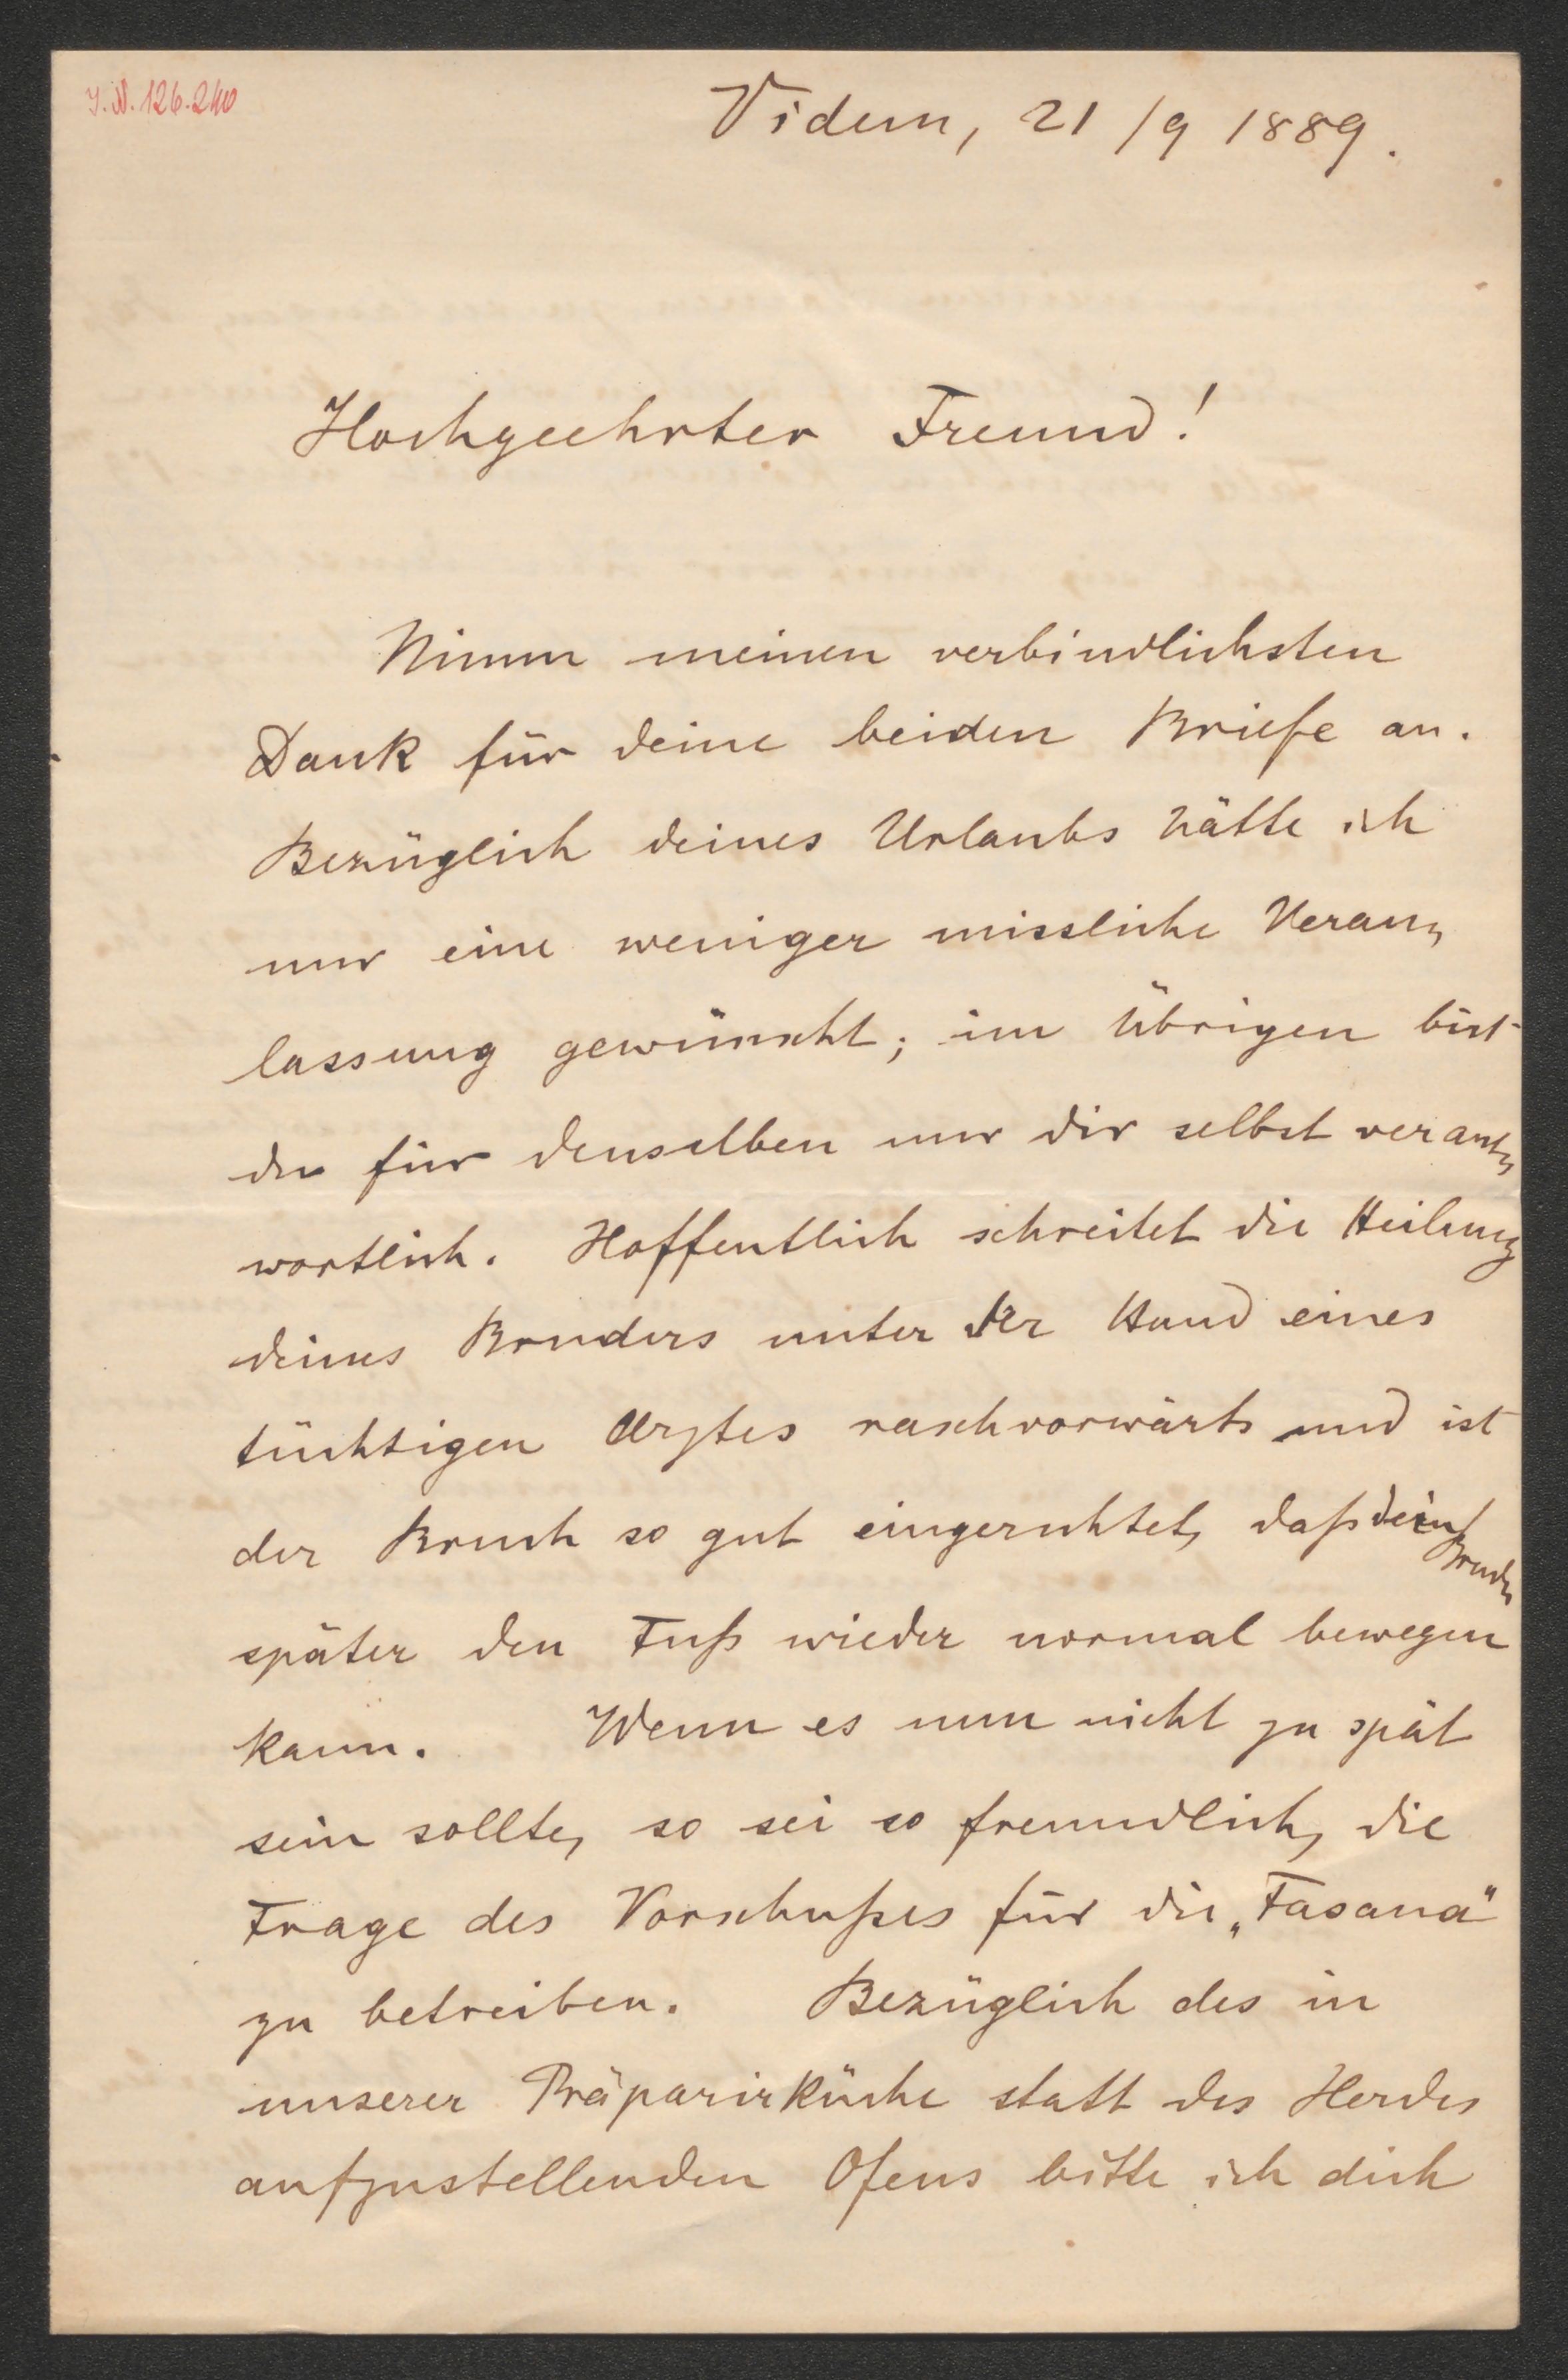 J. N. 126.240
Videm, 21/9 1889.
Hochgeehrter Freund!
Nimm meinen verbindlichsten
Dank für deine beiden Briefe an.
Bezüglich deines Urlaubs hätte ich
nur eine weniger missliche Veran-
lassung gewünscht; im Übrigen bist
du für denselben nur dir selbst verant-
wortlich. Hoffentlich schreitet die Heilung
deines Bruders unter der Hand eines
tüchtigen Arztes rasch vorwärts und ist
der Bruch so gut eingerichtet, daß dein Bruder
später den Fuß wieder normal bewegen
kann. Wenn es nun nicht zu spät
sein sollte, so sei so freundlich, die
Frage des Vorschußes für die „Fasana"
zu betreiben. Bezüglich des in
unserer Präparirküche statt des Herdes
aufzustellenden Ofens bitte ich dich